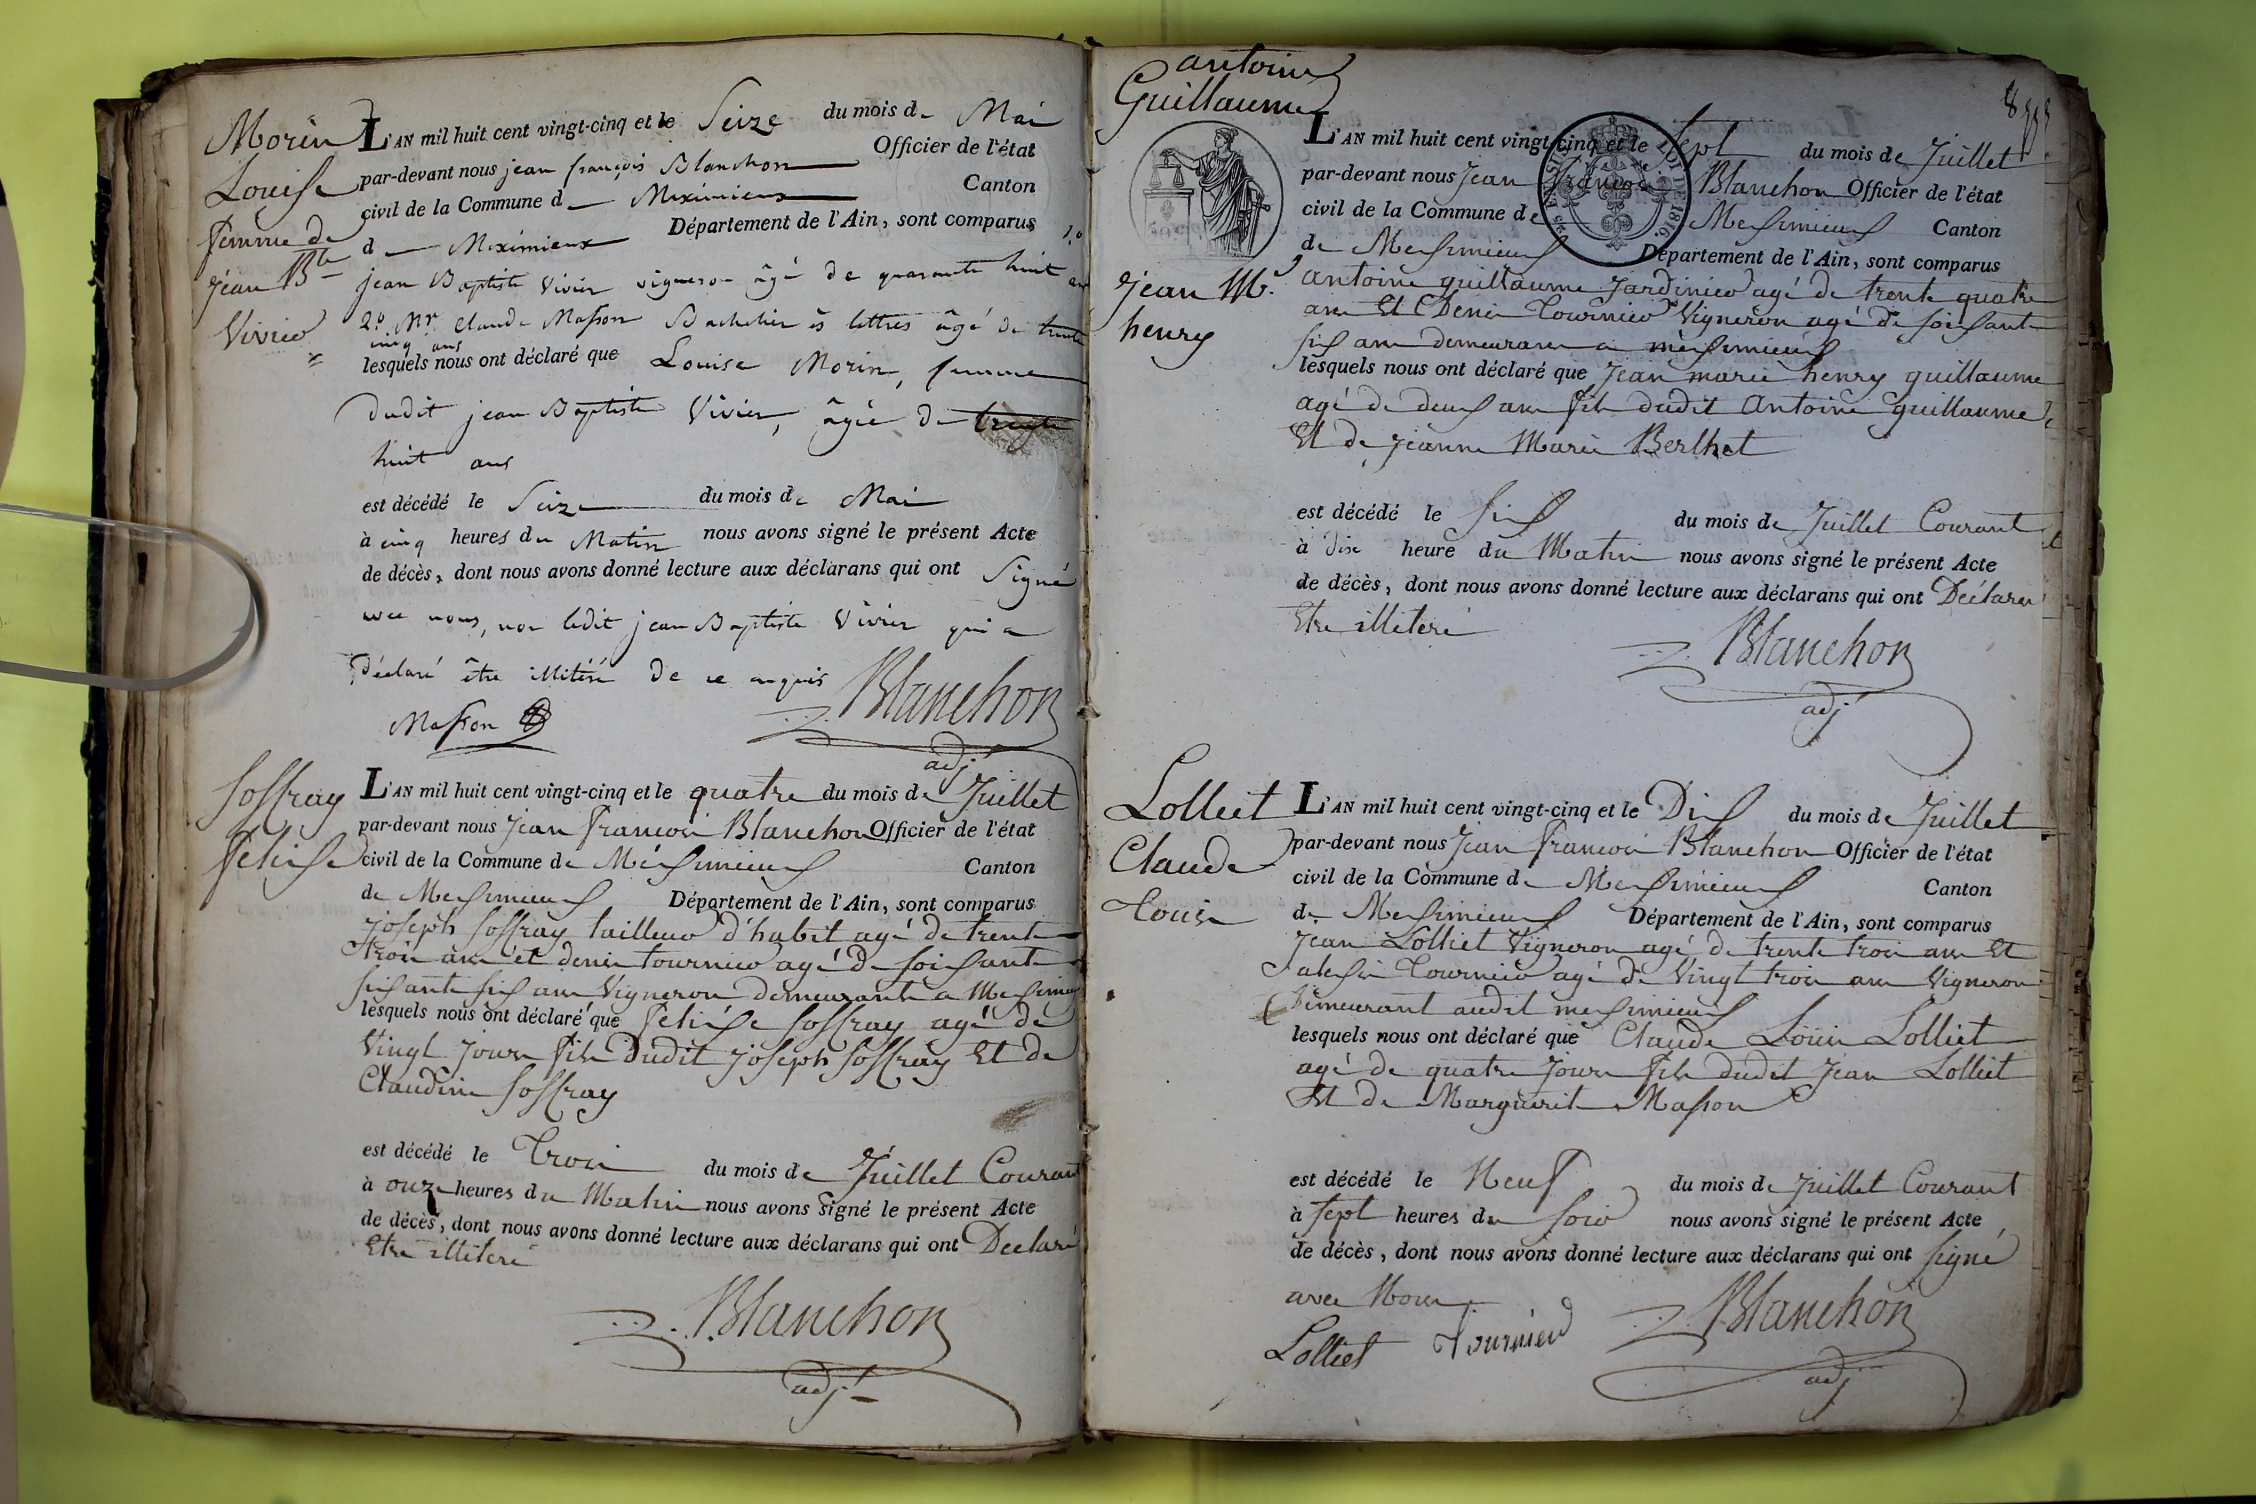 Morin
Louise
femme de
Jean Bte
Vivier
L'AN mil huit cent vingt-cinq et le Seize du mois de Mai
par-devant nous jean françois Blanchon Officier de l'état
civil de la Commune de Meximieux Canton
de Meximieux Département de l'Ain, sont comparus 1.º
jean Baptiste Vivier vigneron âgé de quarante huit ans
2.º Mr Claude Masson Bachelier ès lettres âgé de trente
cinq ans
lesquels nous ont déclaré que Louise Morin, femme
dudit jean Baptiste Vivier, âgée de trente
huit ans
est décédé le Seize du mois de Mai
à cinq heures du Matin nous avons signé le présent Acte
de décès, dont nous avons donné lecture aux déclarans qui ont Signé
avec nous, non ledit jean Baptiste Vivier qui a
Déclaré être illitéré de ce enquis
Masson Blanchon
adj
Soffray
felise
L'AN mil huit cent vingt-cinq et le quatre du mois de Juillet
par-devant nous Jean francois Blanchon Officier de l'état
civil de la Commune de Mésimieux Canton
de Mesimieux Département de l'Ain, sont comparus
joseph Soffray tailleur d'habit agé de trente
trois ans et denis tournier agé de soisante
sisante sis ans Vigneron demeurants a Mesimieux
lesquels nous ont déclaré que felise Soffray agé de
Vingt jours fils Dudit joseph Soffray Et de
Claudine Soffray
est décédé le Trois du mois de Juillet Courant
à onze heures du Matin nous avons signé le présent Acte
de décès, dont nous avons donné lecture aux déclarans qui ont Déclaré
Etre illiteré
Blanchon
adj
antoine
Guillaume
Jean M.
henry
L'AN mil huit cent vingt-cinq et le Sept du mois de Juillet
par-devant nous Jean francois Blanchon Officier de l'état
civil de la Commune de Mesimieux Canton
de Mesimieux Département de l'Ain, sont comparus
LOI DE 1816.
antoine guillaume Jardinier agé de trente quatre
ans Et Denis Tournier Vigneron agé de soisante
sis ans demeurans a mésimieux
lesquels nous ont déclaré que Jean marie henry guillaume
agé de deux ans fils dudit antoine guillaume
Et de jeanne Marie Berthet
est décédé le sis du mois de Juillet Courant
à dix heure du Matin nous avons signé le présent Acte
de décès, dont nous avons donné lecture aux déclarans qui ont Déclarer
Etre illiteré
Blanchon
adj
Lolliet
Claude
Louis
L'AN mil huit cent vingt-cinq et le Dix du mois de Juillet
par-devant nous Jean francois Blanchon Officier de l'état
civil de la Commune de Mesimieux Canton
de Mesimieux Département de l'Ain, sont comparus
Jean Lolliet Vigneron agé de trente trois ans Et
Tournier agé de Vingt trois ans Vigneron
Demeurant audit mesimieux
lesquels nous ont déclaré que Claude Louis Lolliet
agé de quatre Jours fils dudit Jean Lolliet
Et de Marguerite Masson
est décédé le Neuf du mois de Juillet Courant
à sept heures du soir nous avons signé le présent Acte
de décès, dont nous avons donné lecture aux déclarans qui ont signé
avec Nous
Lolliet Tournier Blanchon
adj